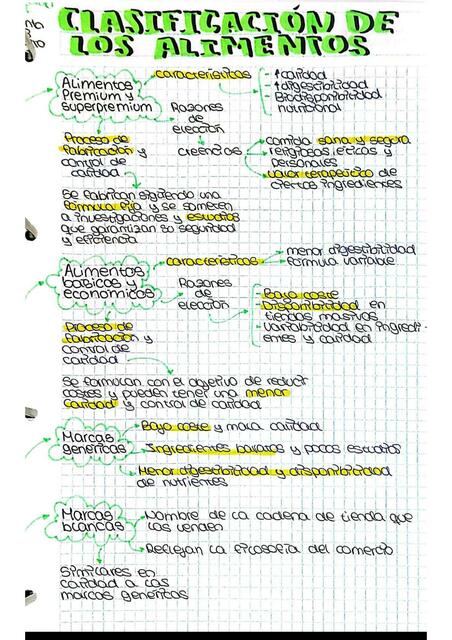 CLASIFICACIÓN DE
LOS ALIMENTOS
Alimentos
Premium y
superpremium
características
↑ calidad
↑ digestibilidad
Biodisponibilidad
nutricional
Razones
de
elección
creencias
comida sana y segura
religiosas, éticas y
personales
valor terapéutico de
ciertos ingredientes
Proceso de
fabricación y
control de
calidad
Se fabrican siguiendo una
fórmula fija y se someten
a investigaciones y estudios
que garantizan su seguridad
y eficiencia
Alimentos
básicos y
económicos
características
menor digestibilidad
Fórmula variable
Razones
de
elección
- Bajo coste
- Disponibilidad en
tiendas masivas
- variabilidad en ingredi-
entes y calidad
Proceso de
fabricación y
control de
calidad
Se formulan con el objetivo de reducir
costes y pueden tener una menor
calidad y control de calidad
Marcas
genéricas
Bajo coste y mala calidad
Ingredientes baratos y pocos estudios
Menor digestibilidad y disponibilidad
de nutrientes
Marcas
blancas
Nombre de la cadena de tienda que
las venden
Reflejan la filosofía del comercio
Similares en
calidad a las
marcas genéricas